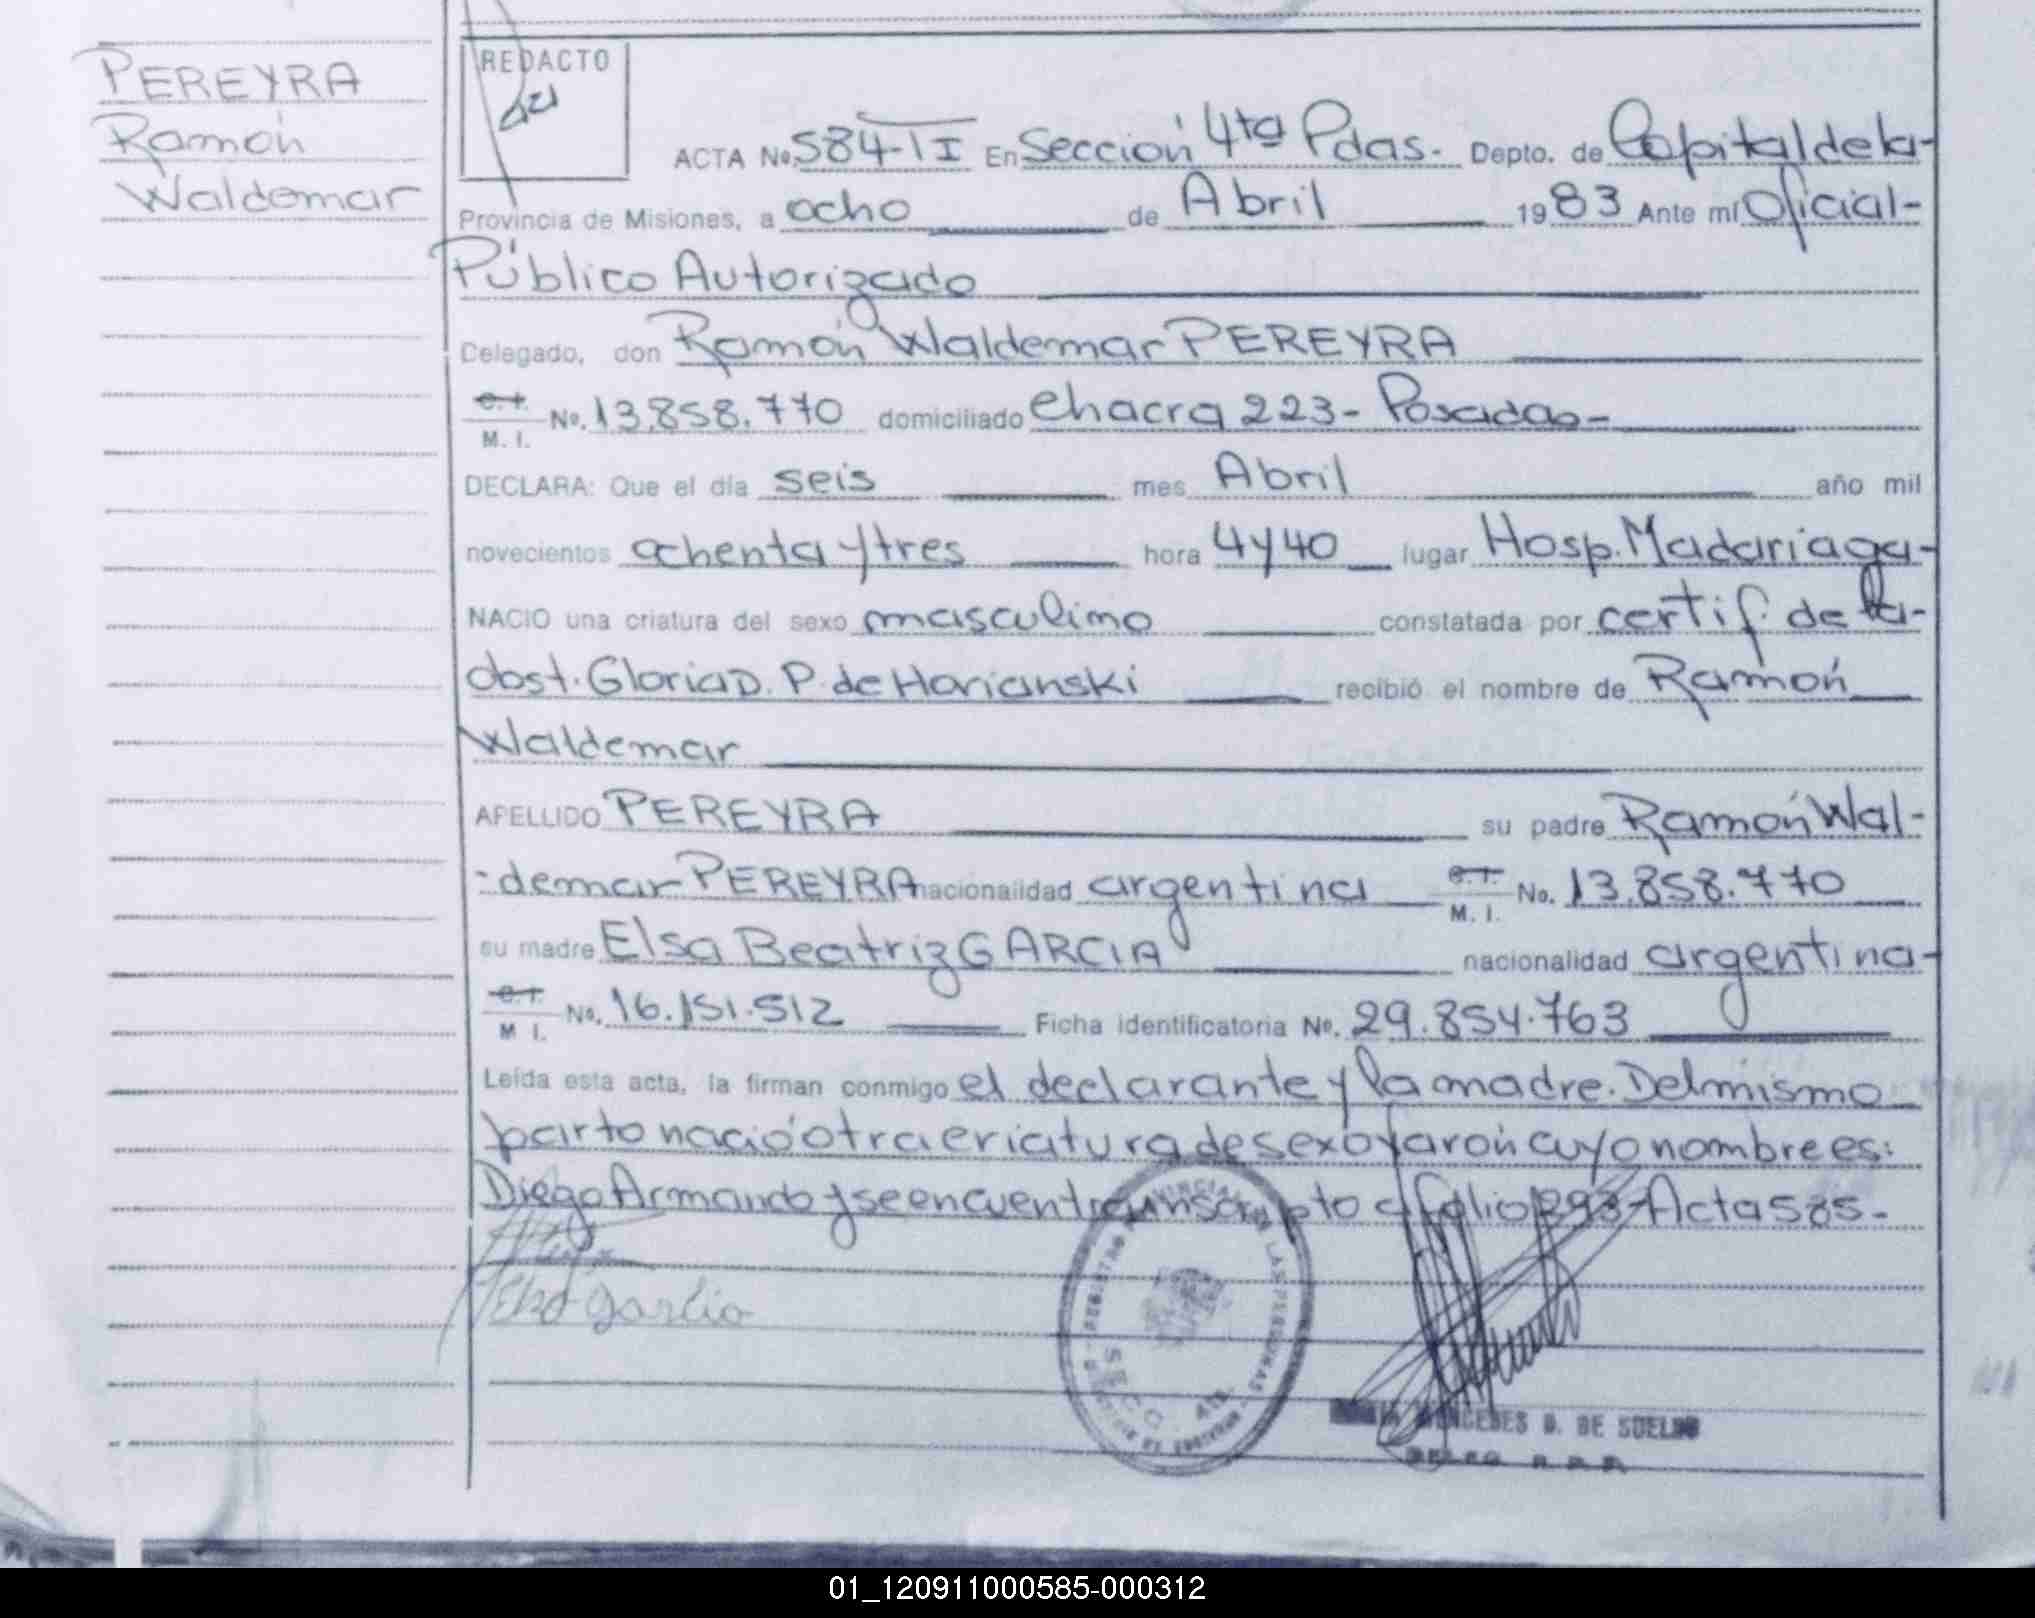 PEREYRA
Ramón
Waldemar
REDACTO
ACTA No. 584-TI En Sección 4ta Pdas. Depto. de Capital de la-
Provincia de Misiones, a ocho de Abril 1983 Ante mí Oficial-
Público Autorizado
Delegado, don Ramón Waldemar PEREYRA
C. I.
M. I. No. 13.858.770 domiciliado chacra 223- Posadas-
DECLARA: Que el día seis mes Abril año mil
novecientos ochenta y tres hora 4 y 40 lugar Hosp. Madariaga-
NACIO una criatura del sexo masculino constatada por certif. de la-
obst. Gloria D. P. de Harianski recibió el nombre de Ramón
Waldemar
APELLIDO PEREYRA su padre Ramón Wal-
-demar PEREYRA nacionalidad argentina C. I. M. I. No. 13.858.770
su madre Elsa Beatriz GARCIA nacionalidad argentina-
C. I.
M I. No. 16.151.512 Ficha identificatoria No. 29.854.763
Leída esta acta, la firman conmigo el declarante y la madre. Del mismo
parto nació otra criatura de sexo varón cuyo nombre es:
Diego Armando y se encuentra inscripto a folio 293-Acta 585-
Elsa Garcia
REGISTRO PROVINCIAL DE LAS PERSONAS
SECC. 4ta.
MERCEDES D. DE SUELDO
DELEG R. P. P.
01_120911000585-000312